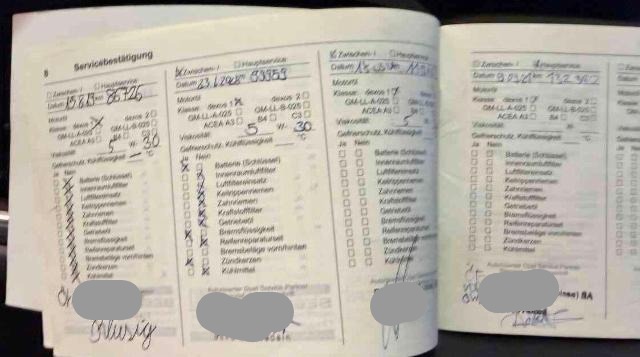 8 Servicebestätigung
Zwischen- / Hauptservice
Datum km 86726
Motoröl
Klasse: dexos 1 dexos 2
GM-LL-A-025 GM-LL-B-025
ACEA A3 B4 C3
Viskosität: 5 W- 30
Gefrierschutz, Kühlflüssigkeit °C
Ja Nein
Batterie (Schlüssel)
Innenraumluftfilter
Luftfiltereinsatz
Keilrippenriemen
Zahnriemen
Kraftstofffilter
Getriebeöl
Bremsflüssigkeit
Reifenreparaturset
Bremsbeläge vorn/hinten
Zündkerzen
Kühlmittel
Zwischen- / Hauptservice
Datum km 99959
Motoröl
Klasse: dexos 1 dexos 2
GM-LL-A-025 GM-LL-B-025
ACEA A3 B4 C3
Viskosität: 5 W- 30
Gefrierschutz, Kühlflüssigkeit °C
Ja Nein
Batterie (Schlüssel)
Innenraumluftfilter
Luftfiltereinsatz
Keilrippenriemen
Zahnriemen
Kraftstofffilter
Getriebeöl
Bremsflüssigkeit
Reifenreparaturset
Bremsbeläge vorn/hinten
Zündkerzen
Kühlmittel
Autorisierter Opel Service-Partner
Zwischen- / Hauptservice
Datum
Motoröl
Klasse: dexos 1 dexos 2
GM-LL-A-025 GM-LL-B-025
ACEA A3 B4 C3
Viskosität: W-
Gefrierschutz, Kühlflüssigkeit
Ja Nein
Batterie (Schlüssel)
Innenraumluftfilter
Luftfiltereinsatz
Keilrippenriemen
Zahnriemen
Kraftstofffilter
Getriebeöl
Bremsflüssigkeit
Reifenreparaturset
Bremsbeläge vorn/hinten
Zündkerzen
Kühlmittel
Zwischen- / Hauptservice
Datum km
Motoröl
Klasse: dexos 1 dexos 2
GM-LL-A-025 GM-LL-B-025
ACEA A3 B4 C3
Viskosität:
Gefrierschutz, Kühlflüssigkeit
Ja Nein
Batterie (Schlüssel)
Innenraumluftfilter
Luftfiltereinsatz
Keilrippenriemen
Zahnriemen
Kraftstofffilter
Getriebeöl
Bremsflüssigkeit
Reifenreparaturset
Bremsbeläge vorn/hinten
Zündkerzen
Kühlmittel
Autorisierter Opel Service-Partner